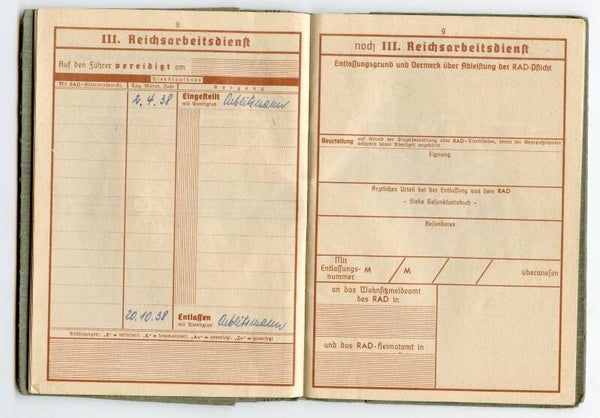 8
III. Reichsarbeitsdienst
Auf den Führer vereidigt am
Dienstlaufbahn
Mit RAD-Stammrollen-Nr. Tag, Monat, Jahr Vorgang
2.4.38 Eingestellt Arbeitsmann
mit Dienstgrad
20.10.38 Entlassen Arbeitsmann
mit Dienstgrad
9
noch III. Reichsarbeitsdienst
Entlassungsgrund und Vermerk über Ableistung der RAD-Pflicht
Beurteilung auf Grund der
während seiner Dienstzeit angehörte
Eignung
Ärztliches Urteil bei der Entlassung aus dem RAD
- Siehe Gesundheitsbuch -
Besonderes
Mit
Entlassungs- M / M / / / überwiesen
nummer
an das Wohnsitzmeldeamt
des RAD in
und das RAD-Heimatamt in